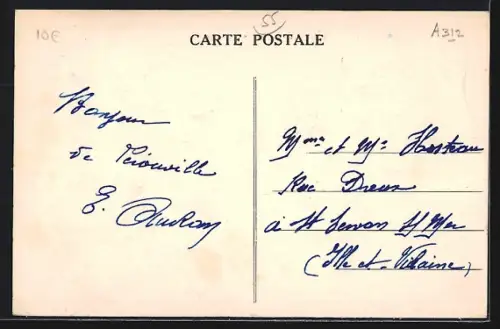 10€
55
A312
CARTE POSTALE
Bonjour
de
E.
Mme et Mr
Rue
à St Servan s/ Mer
(Ille et-Vilaine)